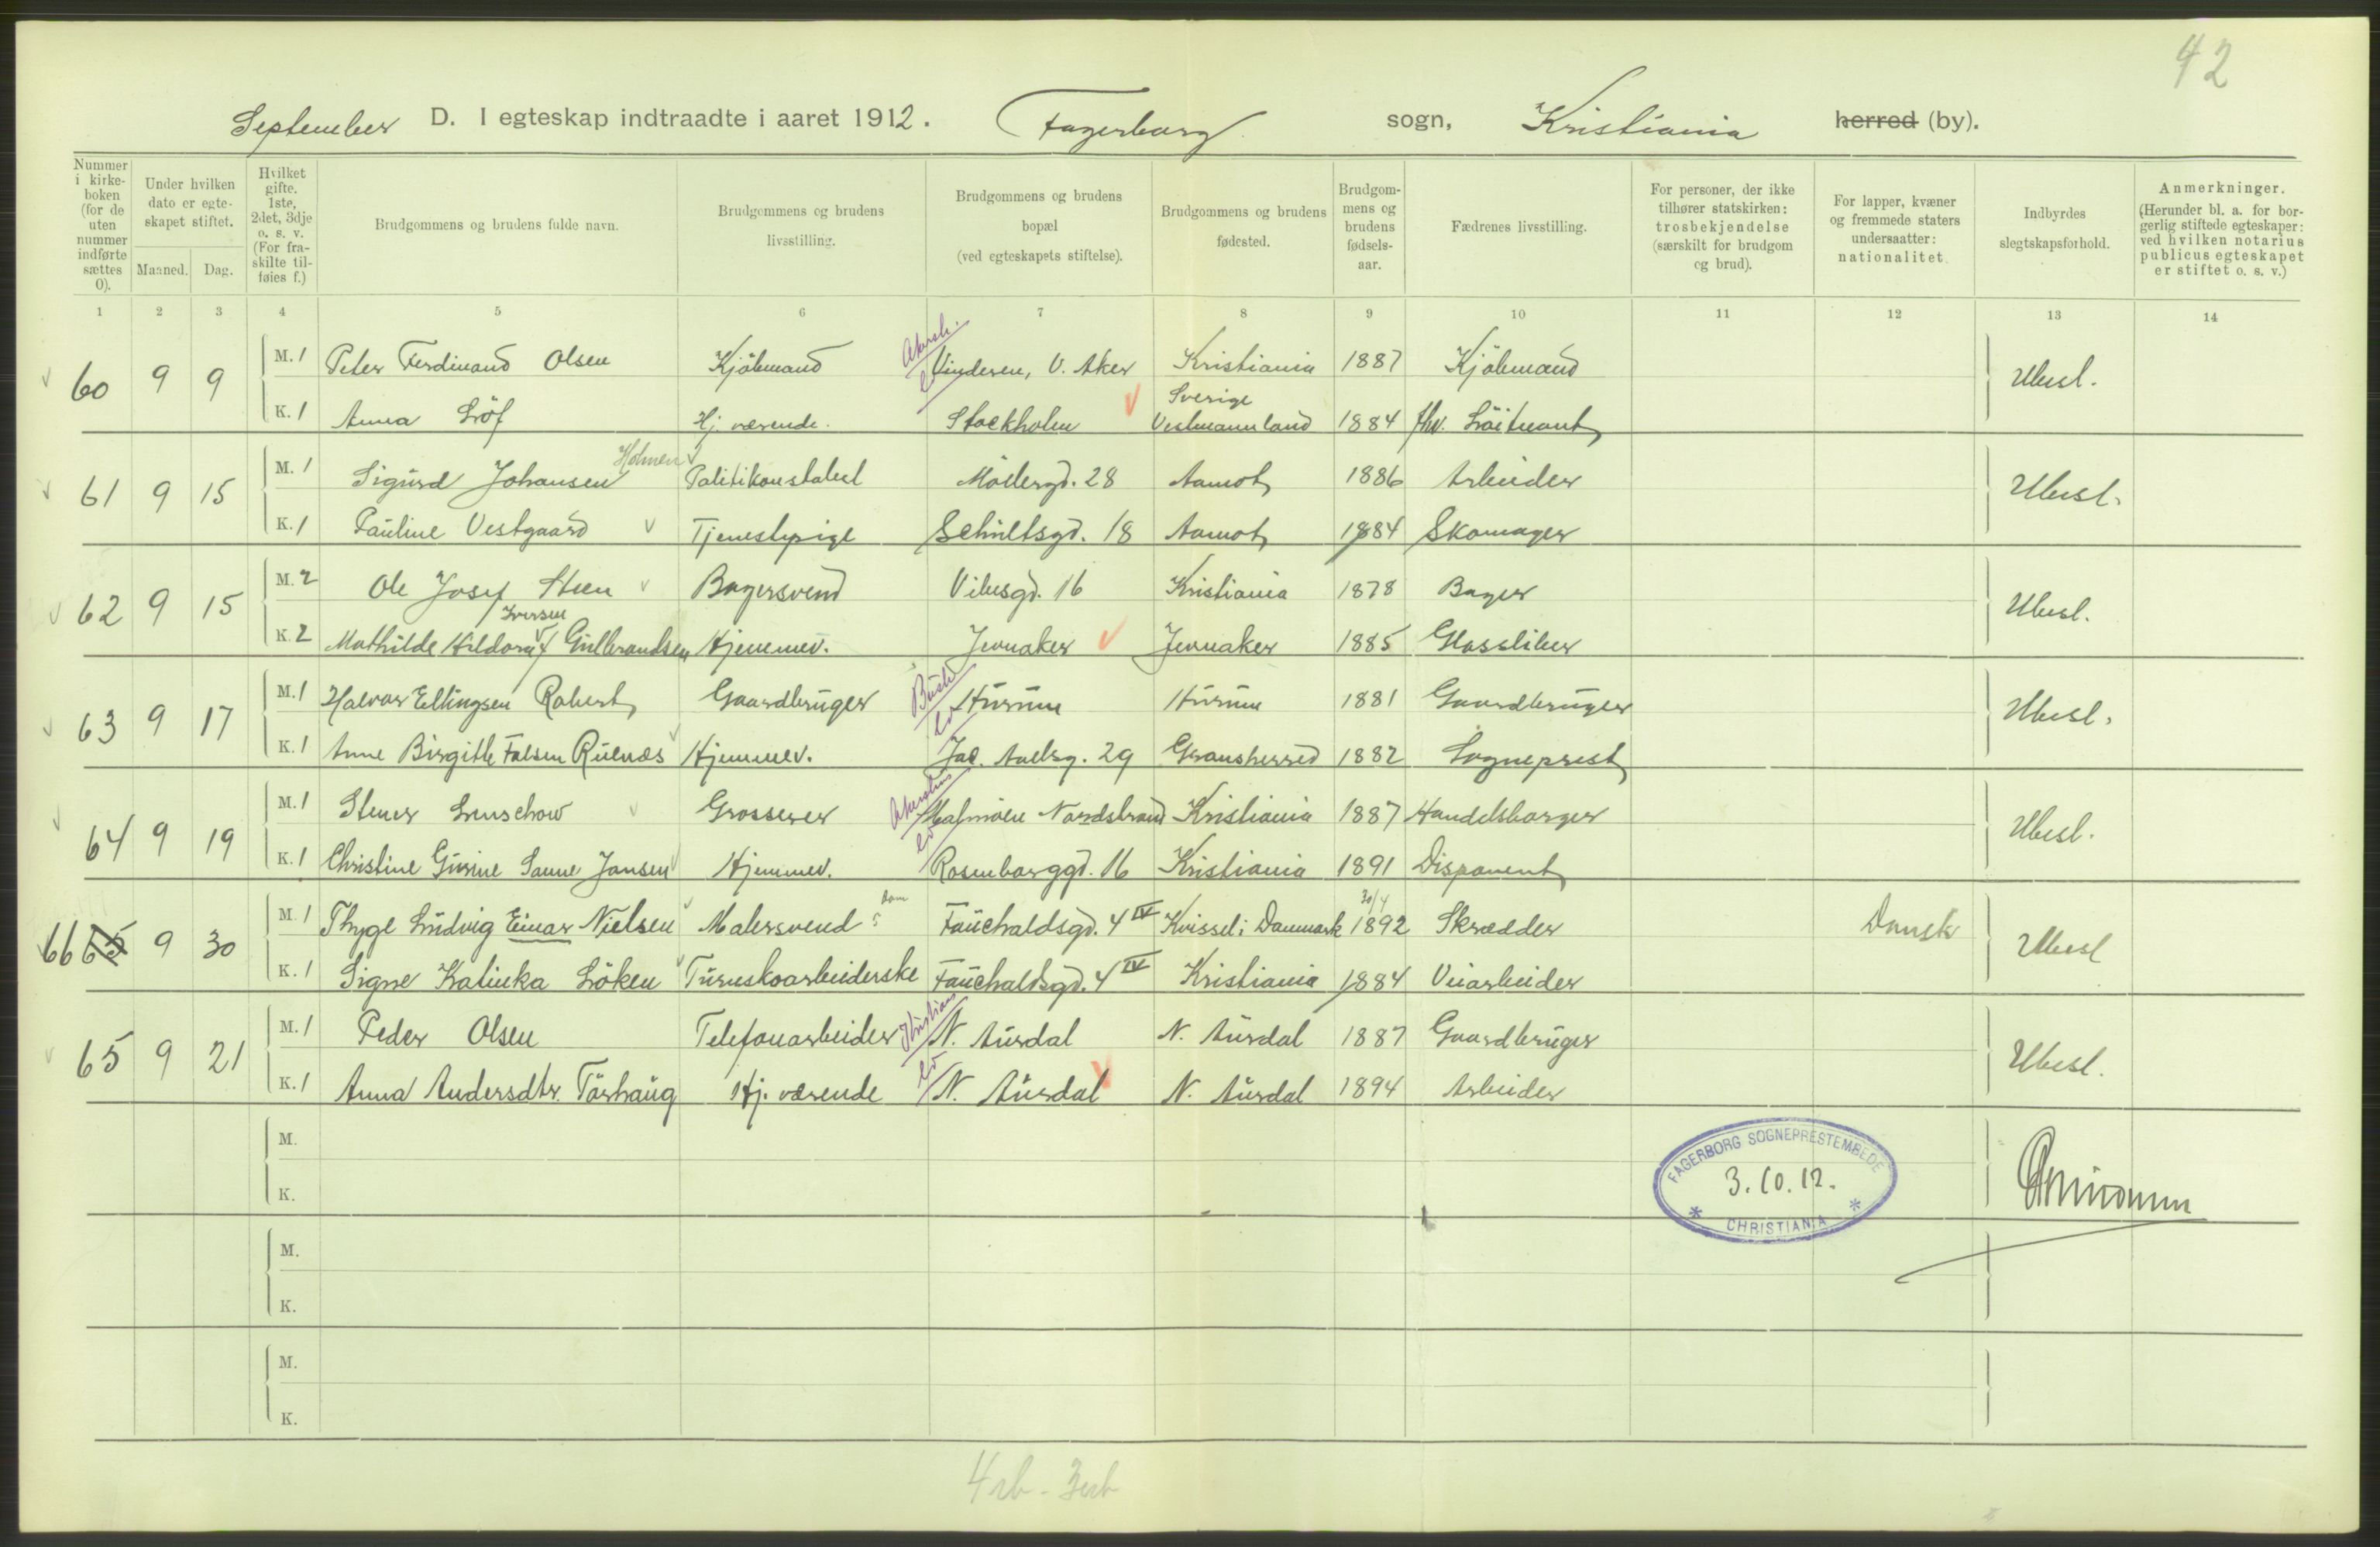 42
September D. I egteskap indtraadte i aaret 1912. Fagerborg sogn, Kristiania herred (by).
Nummer i kirke-boken (for de uten nummer indførte sættes 0).
Under hvilken dato er egte-skapet stiftet.
Maaned. Dag.
Hvilket gifte. 1ste, 2det, 3dje o. s. v. (For fra-skilte til-føies f.)
Brudgommens og brudens fulde navn.
Brudgommens og brudens livsstilling.
Brudgommens og brudens bopæl (ved egteskapets stiftelse).
Brudgommens og brudens fødested.
Brudgom-mens og brudens fødsels-aar.
Fædrenes livsstilling.
For personer, der ikke tilhører statskirken: trosbekjendelse (særskilt for brudgom og brud).
For lapper, kvæner og fremmede staters undersaatter: nationalitet.
Indbyrdes slegtskapsforhold.
Anmerkninger. (Herunder bl. a. for bor-gerlig stiftede egteskaper: ved hvilken notarius publicus egteskapet er stiftet o. s. v.)
1 2 3 4 5 6 7 8 9 10 11 12 13 14
60 9 9 M. 1 Peter Ferdinand Olsen Kjöbmand Akersh. Vinderen, V. Aker Kristiania 1887 Kjöbmand Ubesl.
K. 1 Anna Löf Hj. værende. Stockholm Sverige Vestmannland 1884 fhv. Löitnant
61 9 15 M. 1 Sigurd Johansen Holmen Politikonstabel Möllergd. 28 Aamot 1886 Arbeider Ubesl.
K. 1 Pauline Vestgaard Tjenestepige Schultsgd. 18 Aamot 1884 Skomager
62 9 15 M. 2 Ole Josef Steen Bagersvend Vibesgd. 16 Kristiania 1878 Bager Ubesl.
K. 2 Mathilde Hildora Iversen f. Gulbrandsen Hjemmev. Jevnaker Jevnaker 1885 Glassliber
63 9 17 M. 1 Halvor Ellingsen Robert Gaardbruger Busk. Hurum Hurum 1881 Gaardbruger Ubesl.
K. 1 Anne Birgitte Falsen Ruenæs Hjemmev. Jac. Aallsg. 29 Gransherred 1882 Sogneprest
64 9 19 M. 1 Stener Lenschow Grosserer Akershus Malmöen Nordstrand Kristiania 1887 Handelsborger Ubesl.
K. 1 Christine Gurine Sanne Jansen Hjemmev. Rosenborggd. 16 Kristiania 1891 Disponent
66 65 9 30 M. 1 Thyge Ludvig Einar Nielsen Malersvend Fauchaldsgd. 4 IV Kvissel i Danmark 30/4 1892 Skrædder Dansk Ubesl
K. 1 Signe Katinka Löken Turnskoarbeiderske Fauchaldsgd. 4 IV Kristiania 1884 Veiarbeider
65 9 21 M. 1 Peder Olsen Telefonarbeider Kristians N. Aurdal N. Aurdal 1887 Gaardbruger Ubesl.
K. 1 Anna Andersdtr. Törhaug Hj. værende N. Aurdal N. Aurdal 1894 Arbeider
M.
K.
FAGERBORG SOGNEPRESTEMBEDE
3.10.12.
* CHRISTIANIA *
M.
K.
M.
K.